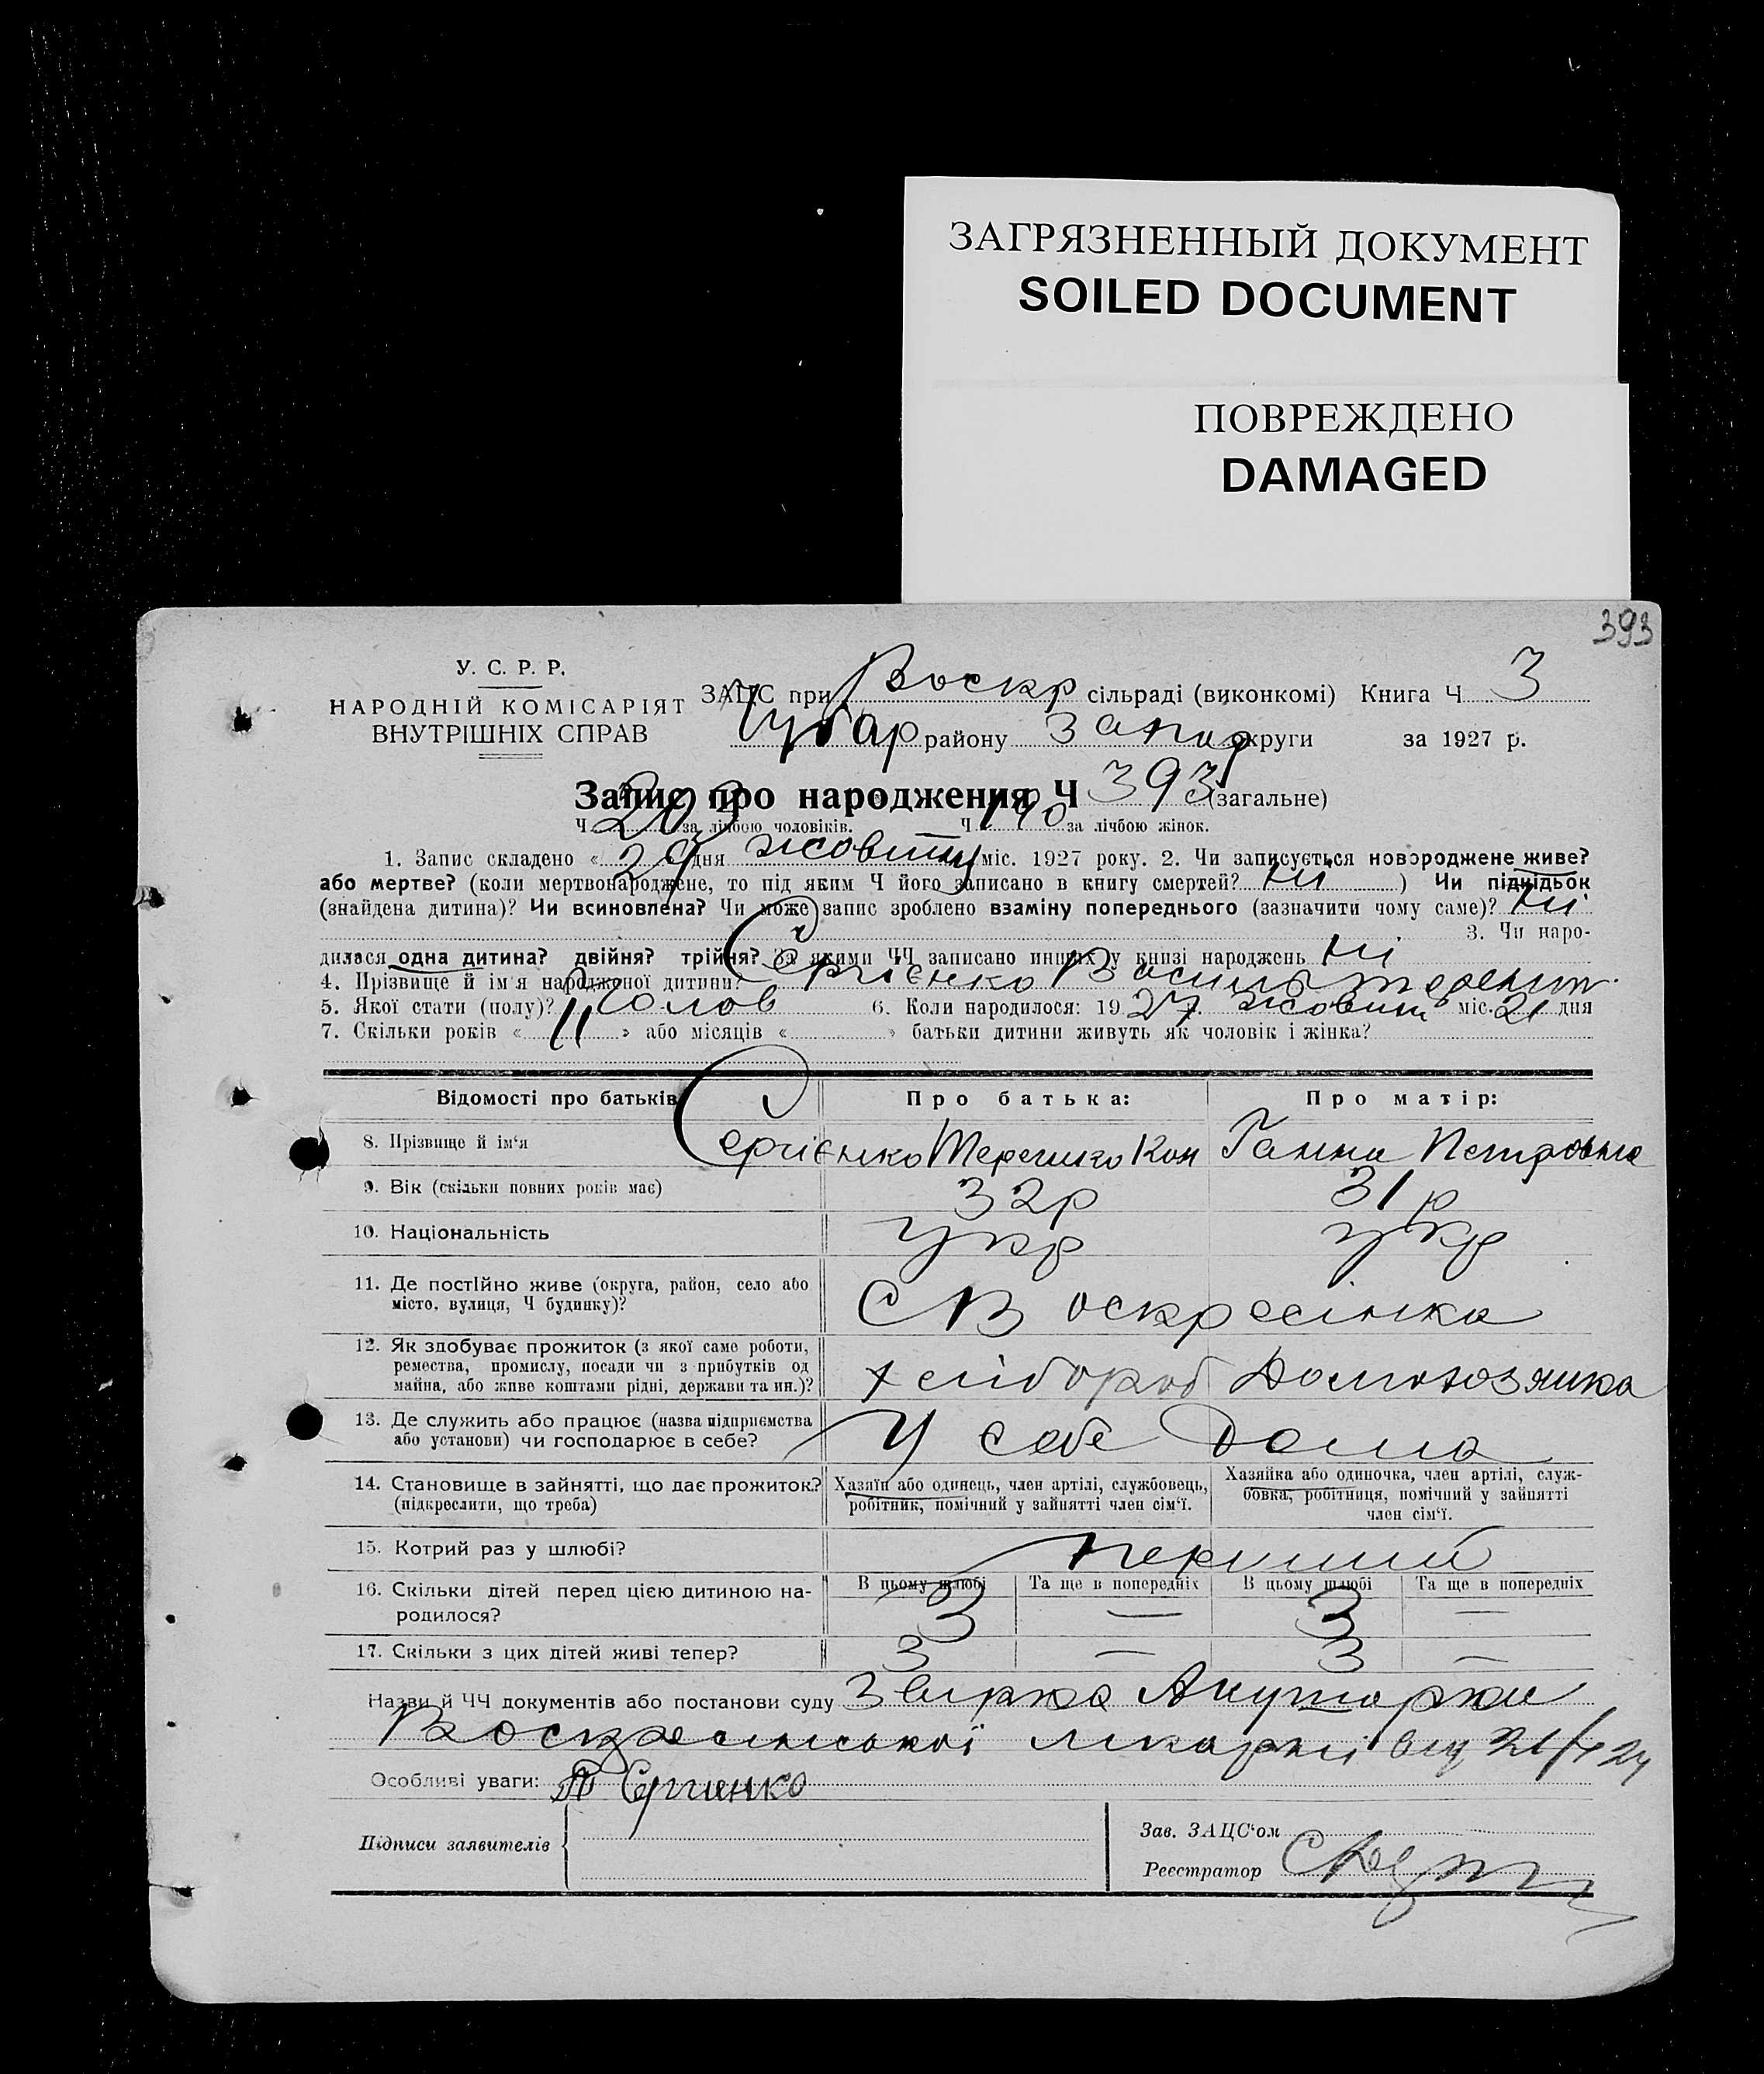 ЗАГРЯЗНЕННЫЙ ДОКУМЕНТ
SOILED DOCUMENT
ПОВРЕЖДЕНО
DAMAGED
393
У. С. Р. Р.
НАРОДНІЙ КОМІСАРІЯТ
ВНУТРІШНІХ СПРАВ
ЗАЦС при Воскр сільраді (виконкомі) Книга Ч 3
Чубар району Запор округи за 1927 р.
Запис про народження Ч 393 (загальне)
Ч. 203 за лічбою чоловіків. Ч. 190 за лічбою жінок.
1. Запис складено « 29 » дня жовтня міс. 1927 року. 2. Чи записується новороджене живе?
або мертве? (коли мертвонароджене, то під яким Ч його записано в книгу смертей? ні ) Чи підкідьок
(знайдена дитина)? Чи всиновлена? Чи може запис зроблено взаміну попереднього (зазначити чому саме)? ні
3. Чи наро-
дилася одна дитина? двійня? трійня? За якими ЧЧ записано инших у книзі народжень ні
4. Прізвище й ім'я народженої дитини? Сергієнко Василь Терешк.
5. Якої стати (полу)? Чолов 6. Коли народилося: 1927. жовтня міс. 21 дня
7. Скільки років « 11 » або місяців « » батьки дитини живуть як чоловік і жінка?
Відомості про батьків Про батька: Про матір:
8. Прізвище й ім'я Сергієнко Терешко Кон Ганна Петровна
9. Вік (скільки повних років має) 32р 31р
10. Національність укр укр
11. Де постійно живе (округа, район, село або
місто, вулиця, Ч будинку)? С Воскресінка
12. Як здобуває прожиток (з якої саме роботи,
ремества, промислу, посади чи з прибутків од
майна, або живе коштами рідні, держави та ин.)? хлібороб Домохозяика
13. Де служить або працює (назва підприємства
або установи) чи господарює в себе? У себе дома
14. Становище в зайнятті, що дає прожиток?
(підкреслити, що треба)
Хазяїн або одинець, член артілі, службовець,
робітник, помічний у зайнятті член сім'ї.
Хазяйка або одиночка, член артілі, служ-
бовка, робітниця, помічний у зайнятті
член сім'ї.
15. Котрий раз у шлюбі? перший
16. Скільки дітей перед цією дитиною на-
родилося?
В цьому шлюбі Та ще в попередніх В цьому шлюбі Та ще в попередніх
3 — 3 —
17. Скільки з цих дітей живі тепер? 3 — 3 —
Назви й ЧЧ документів або постанови суду Звирка Акушорки
Воскресинської лікарні від
Особливі уваги: Т Сергиенко
Підписи заявителів
Зав. ЗАЦС'ом
Реєстратор